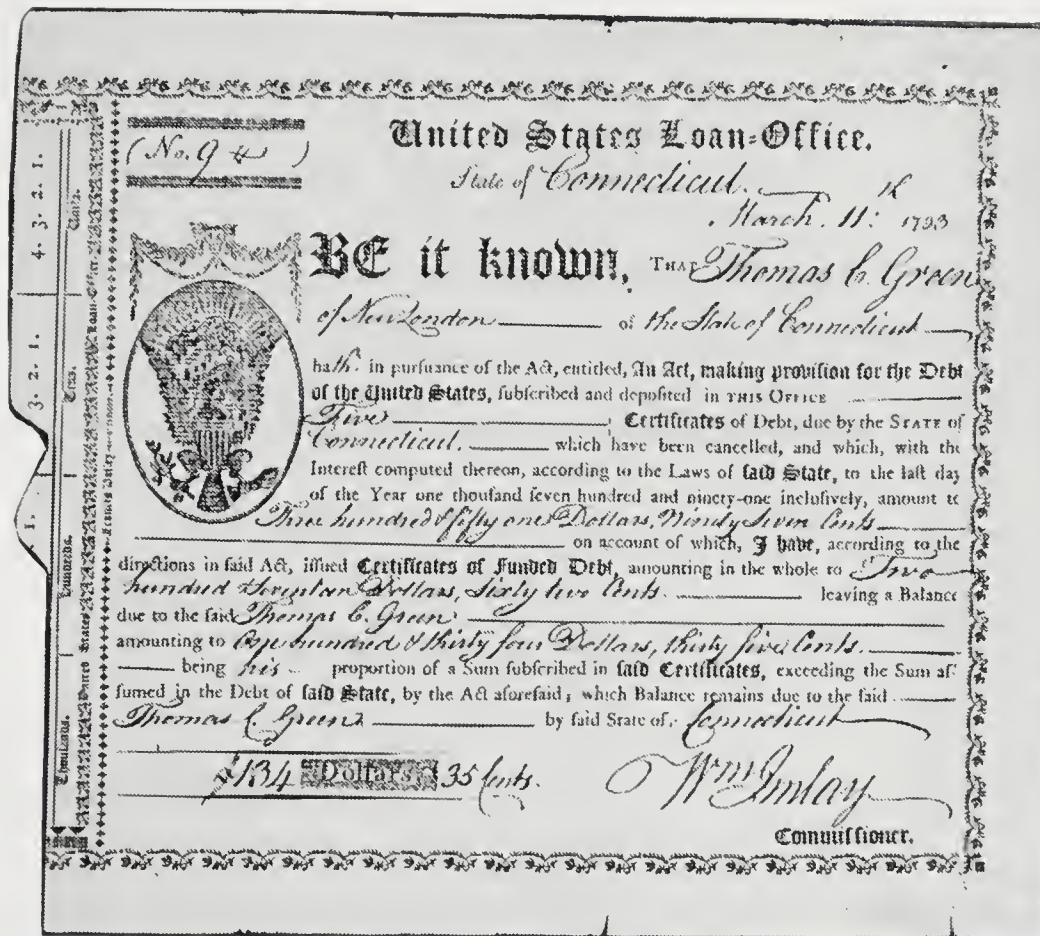 (No. 94)
United States Loan-Office.
State of Connecticut.
March. 11th 1793
BE it known, THAT Thomas C. Green
of New London of the State of Connecticut
hath in purſuance of the Act, entitled, An Act, making proviſion for the Debt
of the United States, ſubſcribed and depoſited in THIS OFFICE
Five Certificates of Debt, due by the STATE of
Connecticut. which have been cancelled, and which, with the
Intereſt computed thereon, according to the Laws of ſaid State, to the laſt day
of the Year one thouſand ſeven hundred and ninety-one incluſively, amount to
Three hundred & fifty one Dollars, Ninety Seven Cents
on account of which, I have, according to the
directions in ſaid Act, iſſued Certificates of Funded Debt, amounting in the whole to Two
hundred Seventeen Dollars, Sixty two Cents. leaving a Balance
due to the ſaid Thomas C. Green
amounting to One hundred & thirty four Dollars, thirty five Cents.
being his proportion of a Sum ſubſcribed in ſaid Certificates, exceeding the Sum aſ-
ſumed in the Debt of ſaid State, by the Act aforeſaid; which Balance remains due to the ſaid
Thomas C. Green by ſaid State of Connecticut
134 Dollars, 35 Cents.
Wm Imlay
Commiſſioner.
Thouſands. Hundreds. Tens. Units.
1. 3. 2. 1. 4. 3. 2. 1.
United States Loan-Office